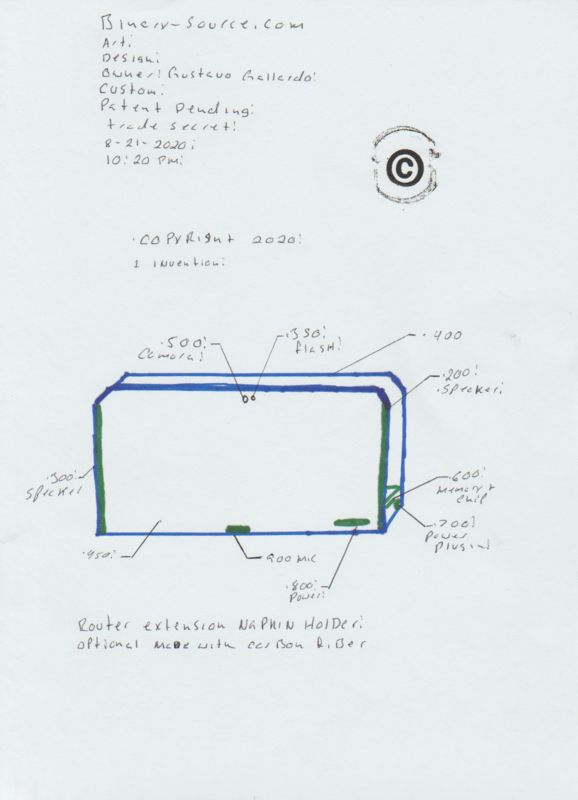 Binary-Source.com
Art:
Design:
Owner! Gustavo Gallardo!
Custom:
Patent Pending:
trade secret!
8-21-2020!
10:20 PM:
©
.COPYRIGHT 2020!
1 Invention!
.500!
Camara!
.350!
flash!
.400
.200!
.Speaker!
.300!
Speaker
.600!
Memory
chip
.700!
Power
Plugin!
.950!
900 MIC
.800!
Power!
Router extension NAPKIN HOLDER!
optional made with carbon fiber